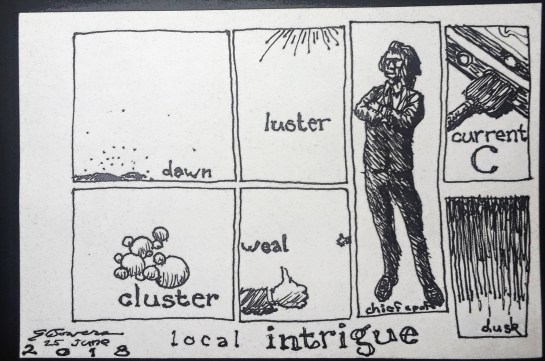 dawn
luster
current
C
cluster
weal
chief spot
dusk
25 June
2018
local intrigue